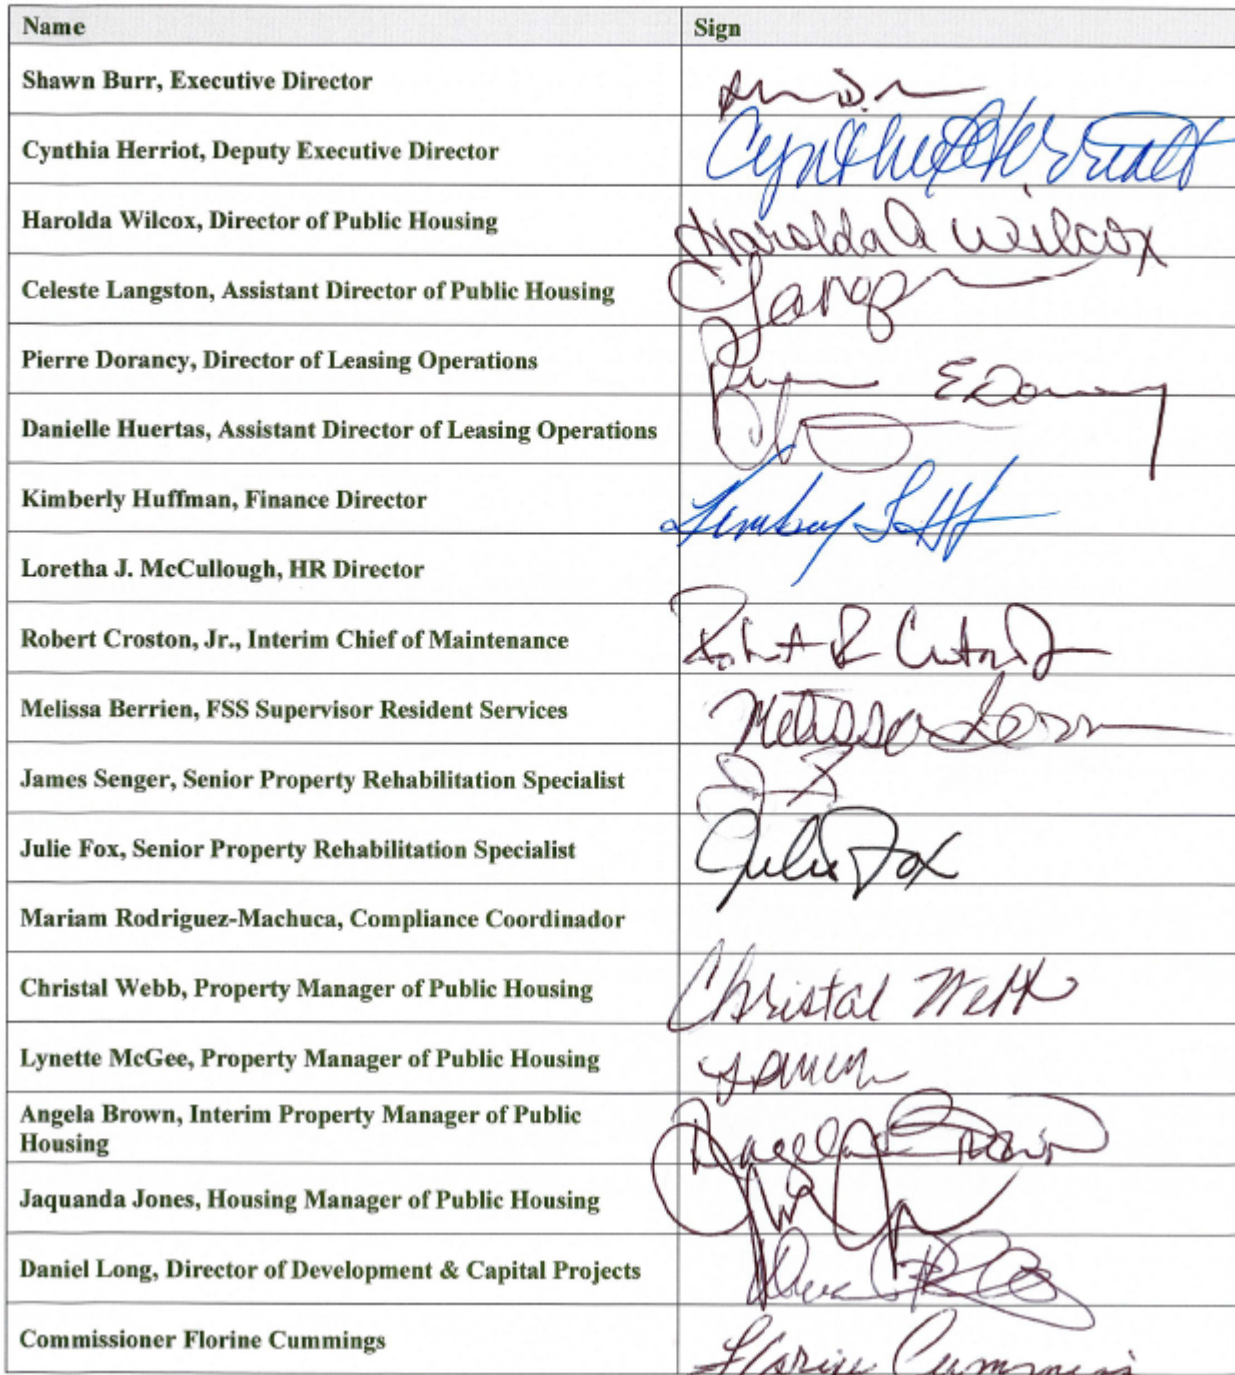 Name Sign
Shawn Burr, Executive Director
Cynthia Herriot, Deputy Executive Director
Harolda Wilcox, Director of Public Housing Harolda A Wilcox
Celeste Langston, Assistant Director of Public Housing
Pierre Dorancy, Director of Leasing Operations
Danielle Huertas, Assistant Director of Leasing Operations
Kimberly Huffman, Finance Director
Loretha J. McCullough, HR Director
Robert Croston, Jr., Interim Chief of Maintenance
Melissa Berrien, FSS Supervisor Resident Services Melissa
James Senger, Senior Property Rehabilitation Specialist
Julie Fox, Senior Property Rehabilitation Specialist Julie Fox
Mariam Rodriguez-Machuca, Compliance Coordinador
Christal Webb, Property Manager of Public Housing Christal Webb
Lynette McGee, Property Manager of Public Housing
Angela Brown, Interim Property Manager of Public
Housing Angela Brown
Jaquanda Jones, Housing Manager of Public Housing
Daniel Long, Director of Development & Capital Projects
Commissioner Florine Cummings Florine Cummings